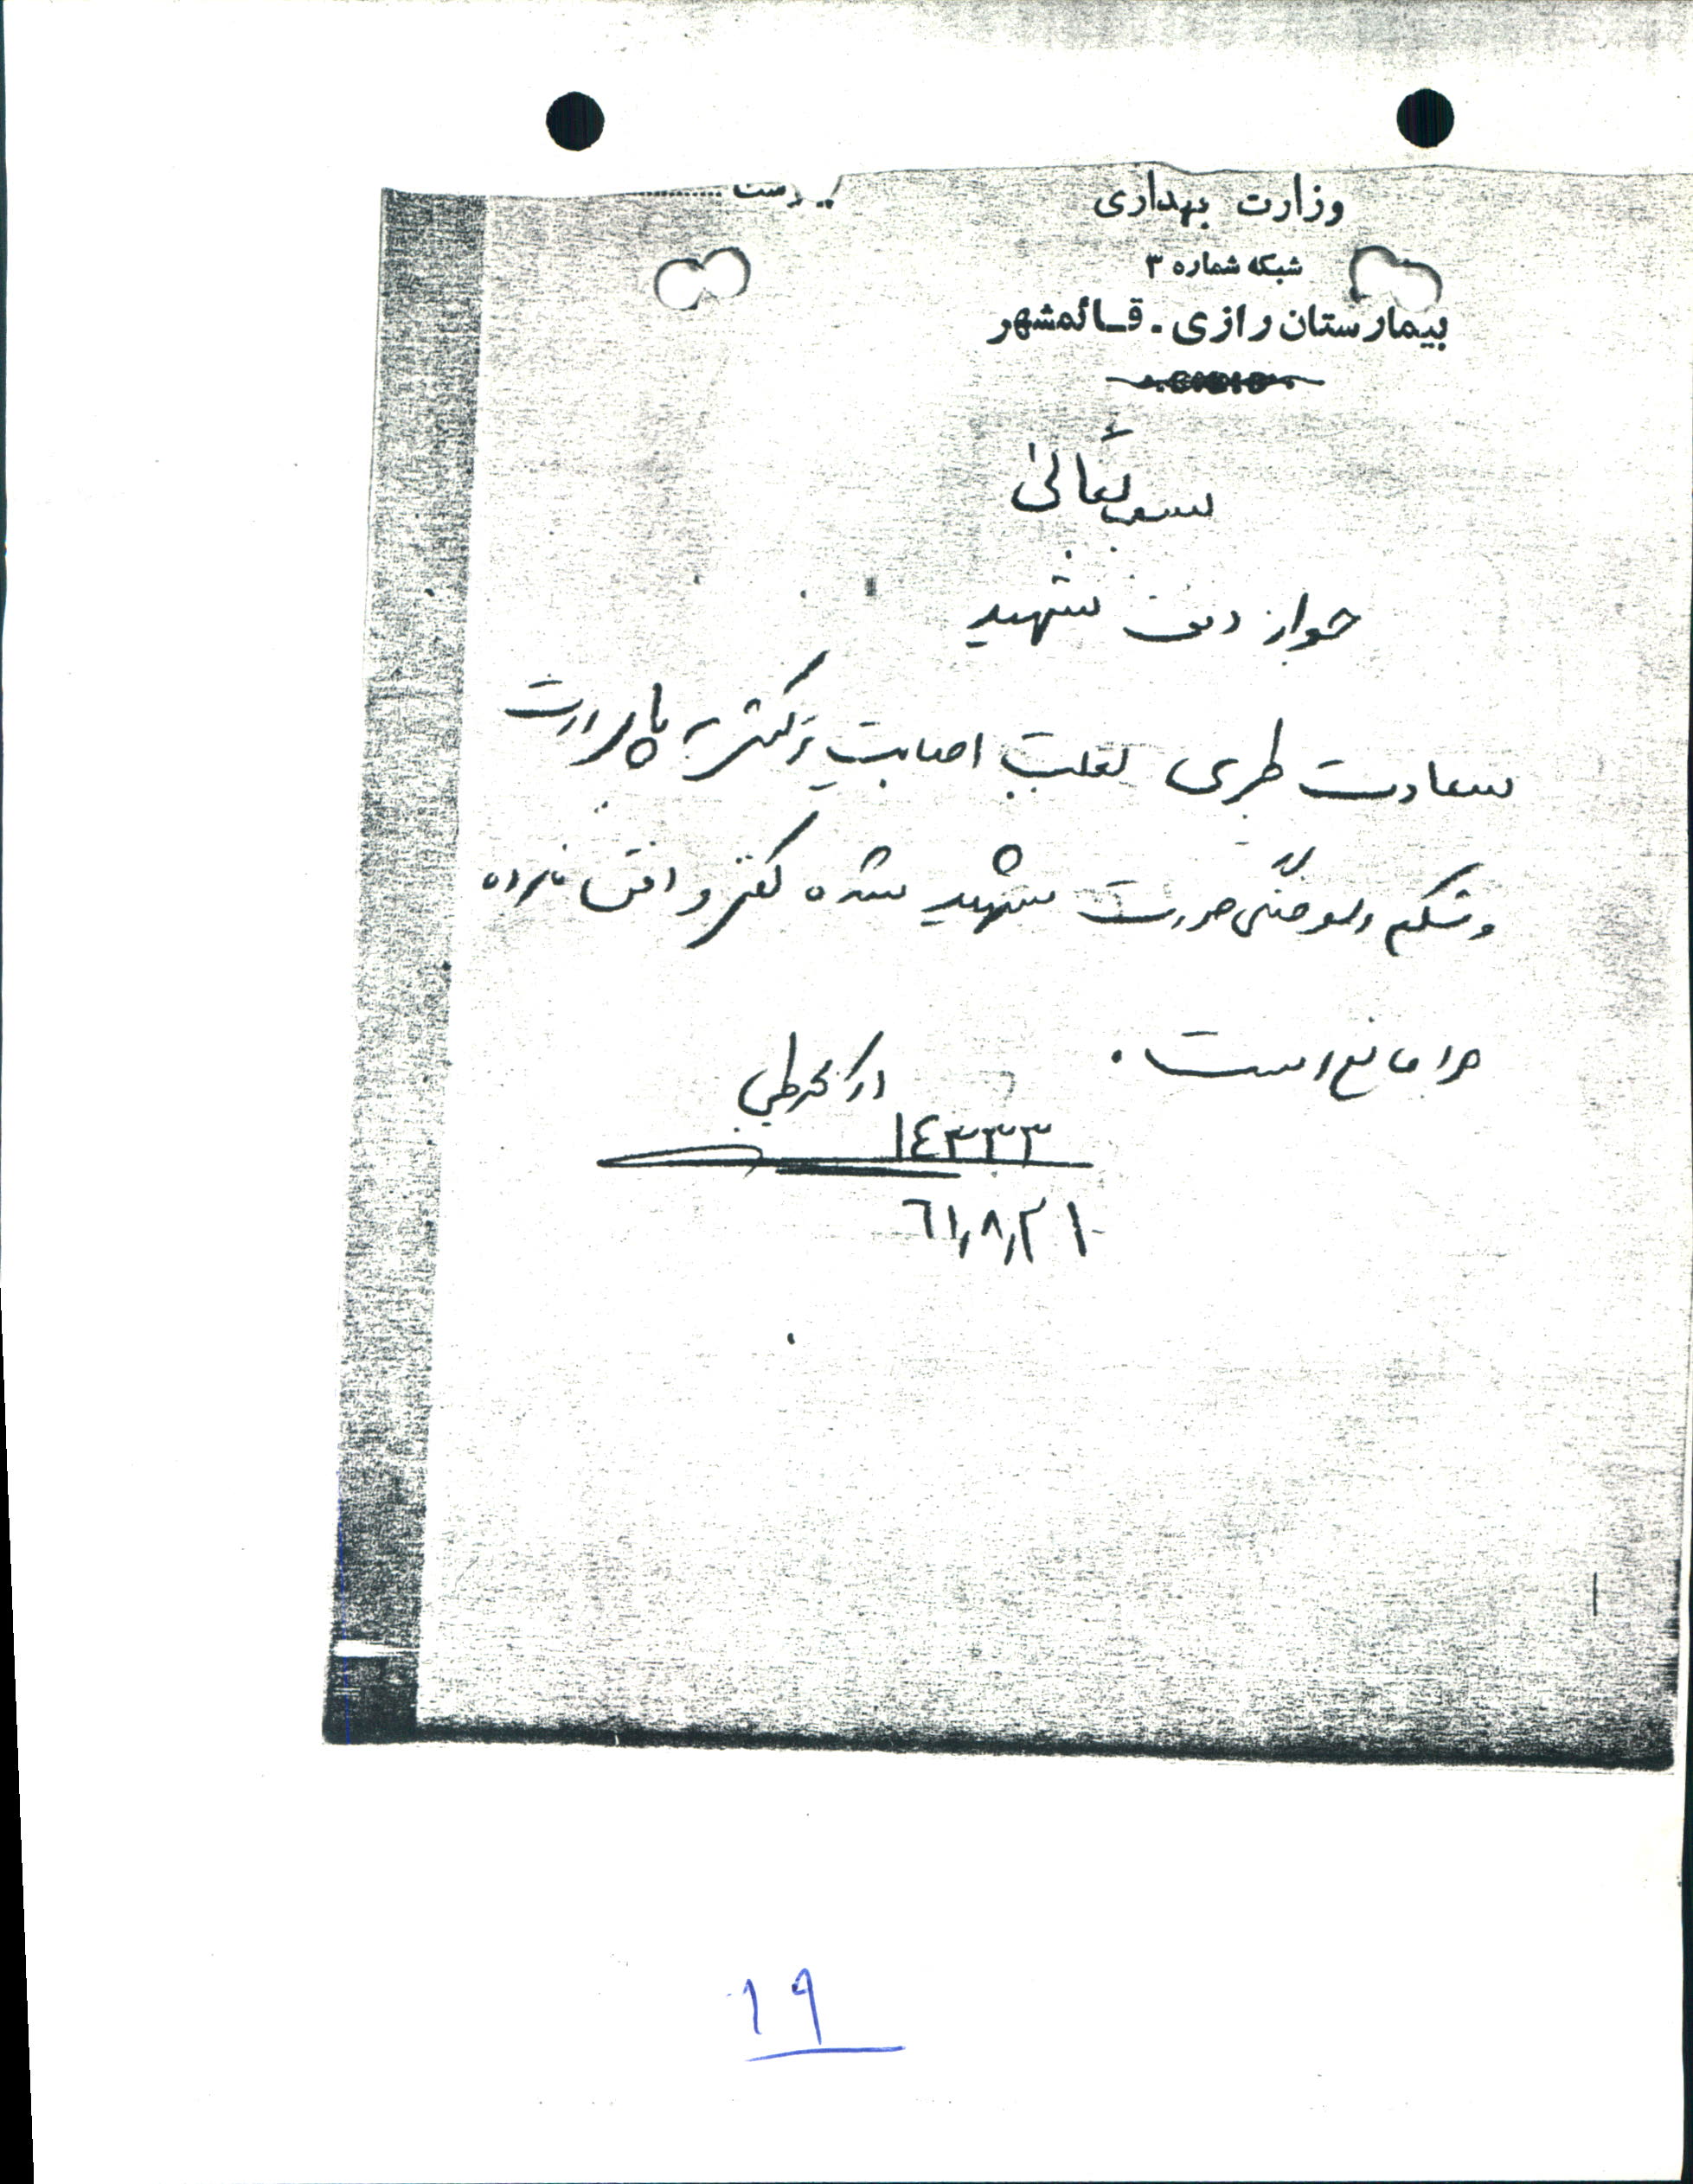 پیوست ..........
وزارت بهداری
شبکه شماره ۳
بیمارستان رازی - قائمشهر
بسمه تعالی
جواز دفن شهید
سعادت طبری بعلت اصابت ترکش به پا و دست
و شکم و سوختگی صورت شهید شده کفن و دفن نامبرده
بلامانع است.
۱٤۳۳۳
٦۱,۸,۲۱
۱۹